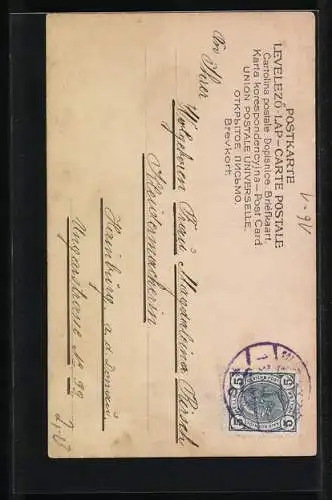 POSTKARTE
LEVELEZŐ-LAP - CARTE POSTALE
Cartolina postale Dopisnice Briefkaart
Karta korespondencyjna - Post Card
UNION POSTALE UNIVERSELLE.
ОТКРЫТОЕ ПИСЬМО.
Brevkort.
Ihrer
Wohlgeboren Frau Magdalena
Kleidermacherin
Hainburg a. d. Donau
Ungarstrasse No 99
5
5
5
5